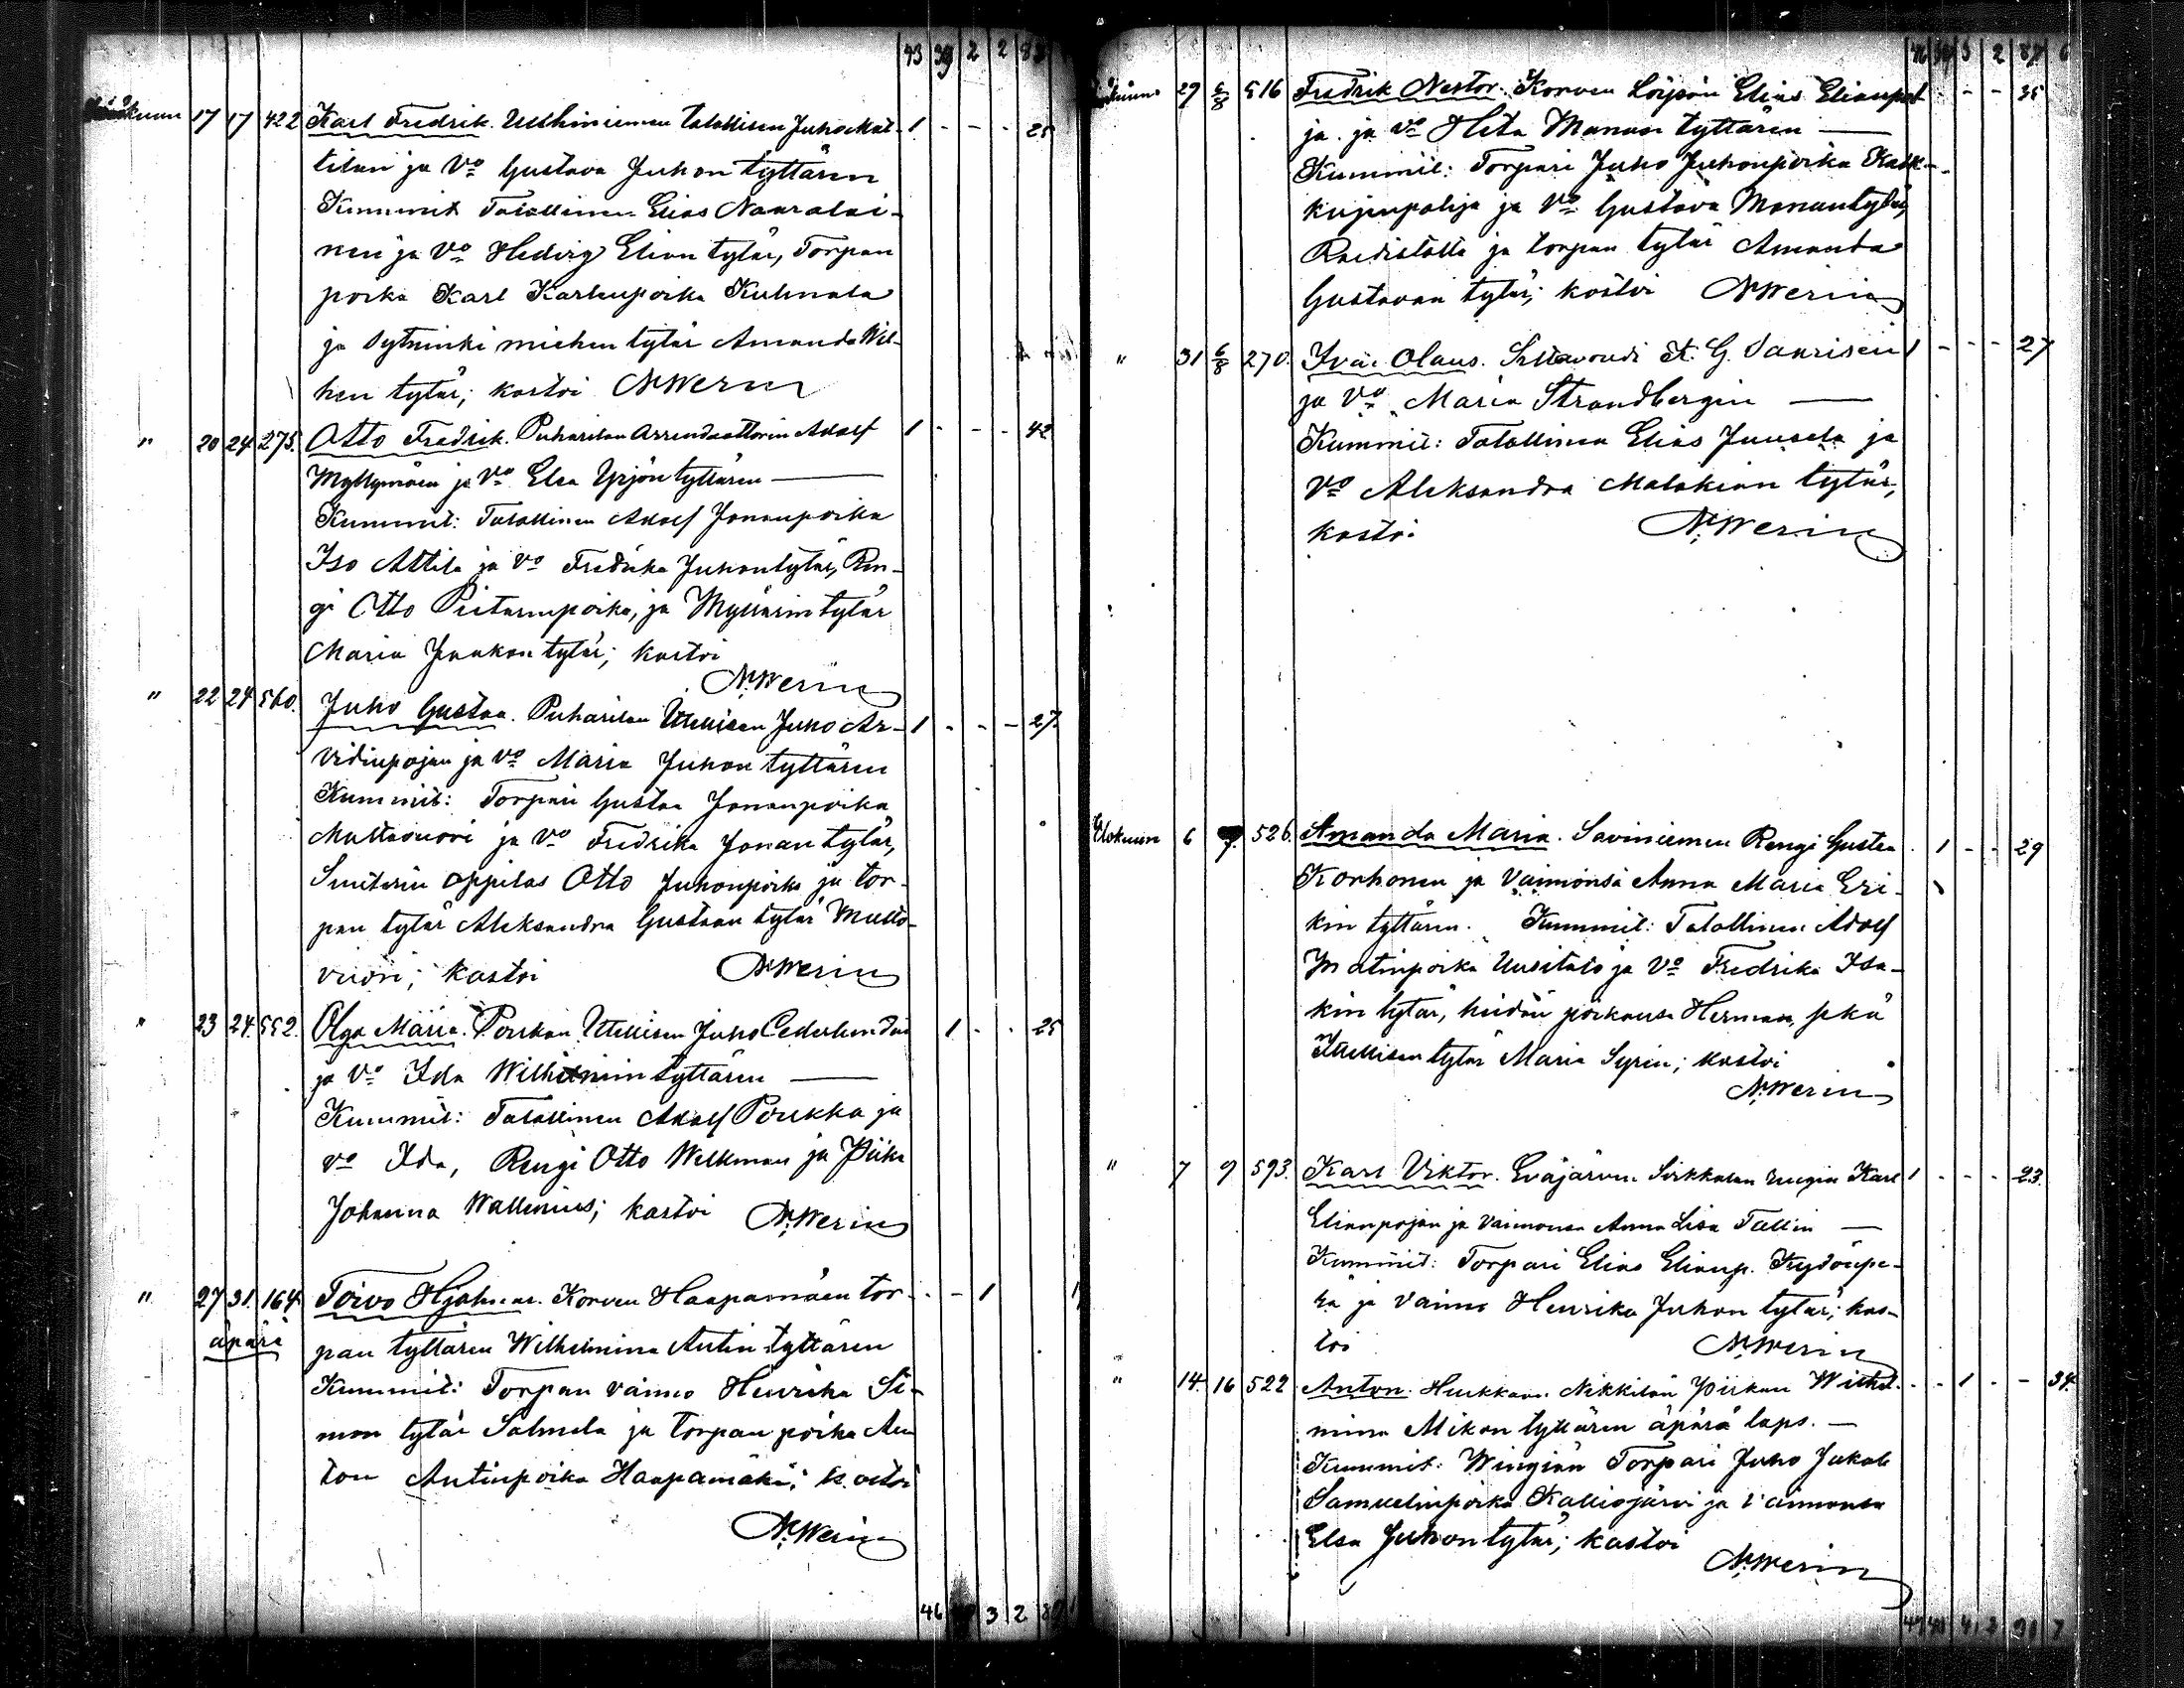 43 39 2 2 83
17 17 422 Karl Fredrik. Uuhiniemen talollisen Juho Mat- 1 - - - 25
tilan ja Vo Gustava Juhon tyttären
Kummit Talollinen Elias Naaralai-
nen ja Vo Hedvig Elian tytär, Torpan
poika Karl Karlenpoika Kuhnala
ja sytninki miehen tytär Amanda Wil-
hen tytär; kastoi N. Werin
" 20 24 275. Otto Fredrik. Puharilan Arrendaattorin Adolf 1 - - - 42
Myllymäen ja Vo Elsa Yrjön tyttären —
Kummit: Talollinen Adolf Jonanpoika
Iso Attila ja Vo Fredrika Juhontytär, Ren-
gi Otto Pietarinpoika, ja Myllärin tytär
Maria Jaakon tytär; kastoi
N. Werin
" 22 24 560. Juho Gustaa. Puharilan Itsellisen Juho Ar- 1 - - - 27.
vidinpojan ja Vo Maria Juhon tyttären
Kummit: Torpari Gustaa Jonanpoika
Multavuori ja Vo Fredrika Jonan tytär,
Suutarin oppilas Otto Juhonpoika ja tor-
pan tytär Aleksandra Gustaan tytär Multa-
vuori; kastoi N. Werin
" 23 24. 552. Olga Maria. Poukan Itsellisen Juho Cederlundin 1 - - 25
ja Vo Ida Wilhelmiin tyttären —
Kummit: Talollinen Adolf Poukka ja
Vo Ida, Rengi Otto Wellman ja Piika
Johanna Wallenius; kastoi N. Werin
" 27 31. 164. Toivo Hjalmar. Korven Haapamäen tor- - - 1
äpärä pan tyttären Wilhelmina Antin tyttären
Kummit: Torpan vaimo Henrika Si-
mon tytär Salmela ja torpan poika An
ton Antinpoika Haapamäki; kastoi
N. Werin
46 3 2
2 6
29 6/8 516 Fredrik Nestor. Korven Löipön Elias Elianpoi - - 35
ja. ja Vo Heta Manasse tyttären —
Kummit: Torpari Juho Juhonpoika Kark-
kujenpohja ja Vo Gustava Manantytär,
Raidiställa ja torpan tytär Amanda
Gustavan tytär; kastoi N. Werin
" 31 6/8 270. Ivar Olaus. Siltavoudi K. G. Saurisen 1 - - - 27
ja Vo Maria Strandbergin —
Kummit: Talollinen Elias Juusela ja
Vo Aleksandra Malakian tytär,
kastoi N. Werin
Elokuun 6 7. 526. Amanda Maria. Saviniemen Rengi Gustaa . 1 - - 29
Korhonen ja vaimonsa Anna Maria Eri-
kin tyttären. Kummit: Talollinen Adolf
Matinpoika Uusitalo ja Vo Fredrika Isa-
kin tytär, heidän poikansa Herman, sekä
Itsellisen tytär Maria Syrén; kastoi
N. Werin
" 7 9 593. Karl Viktor. Eväjärven Sirkkalan rengin Karl 1 - - - 23.
Elianpojan ja vaimonsa Anna Lisa Tallin —
Kummit: Torpari Elias Elianp. Kydönpe-
rä ja vaimo Henrika Juhon tytär; kas-
toi N. Werin
" 14. 16 522 Anton. Hukkaan Nikkilän Piikan Wilhel- - - 1 - - 34.
mina Mikon tyttären äpärä laps. —
Kummit: Wingiän Torpari Juho Jakob
Samuelinpoika Kalliojärvi ja vaimonsa
Elsa Juhontytär; kastoi
N. Werin